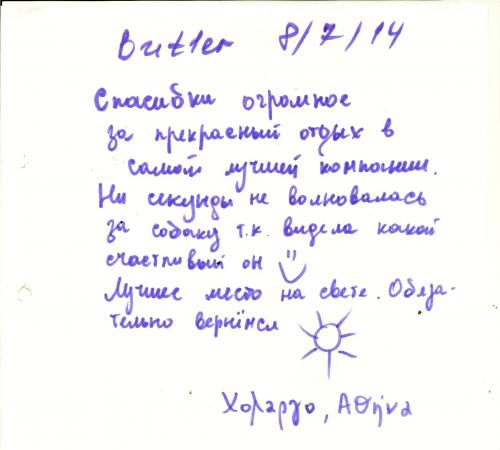 Butler 8/7/14
Спасибки огромное
за прекрасный отдых в
самой лучшей компании.
Ни секунды не волновалась
за собаку т.к. видела какой
счастливый он
Лучшее место на свете. Обяза-
тельно вернімся
Χολαργο, Αθήνα